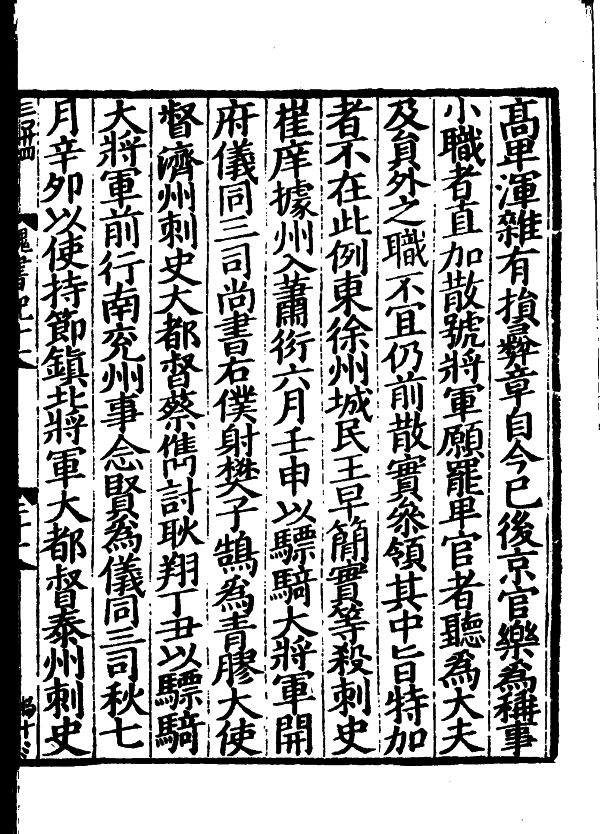 高卑渾雜有損彞章自今已後京官樂爲稱事
小職者直加散號將軍願罷卑官者聽爲大夫
及貟外之職不宜仍前散實叅領其中旨特加
者不在此例東徐州城民王早簡實等殺刺史
崔庠據州入蕭衍六月壬申以驃騎大將軍開
府儀同三司尚書右僕射樊子鵠爲青膠大使
督濟州刺史大都督蔡儁討耿翔丁丑以驃騎
大將軍前行南兖州事念賢爲儀同三司秋七
月辛夘以使持節鎮北將軍大都督泰州刺史
魏書紀十一